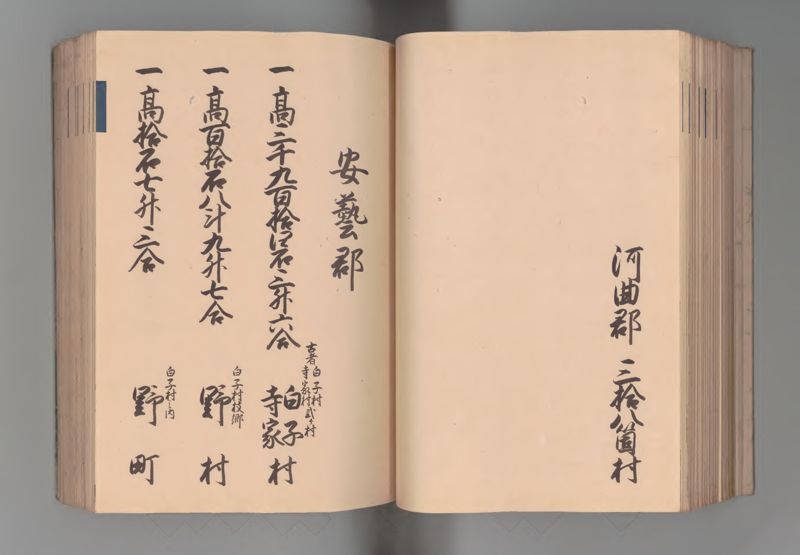 河曲郡 三拾八箇村
安藝郡
古者白子村
寺家村貳ヶ村
一高二千九百拾四石三升六合 白子寺家村
白子村枝郷
一高百拾石八斗九升七合 野村
白子村之内
一高拾石七升三合 野町